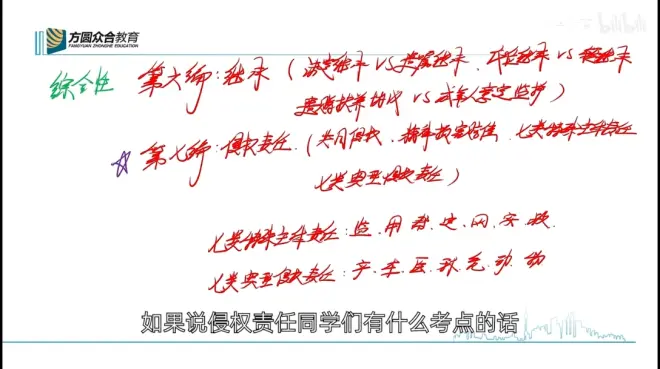 方圆众合教育
FANGYUAN ZHONGHE EDUCATION
bilibili
综合性 第六编：继承（法定继承 VS 遗嘱继承、代位继承 VS 转继承
遗赠扶养协议 VS 成年人意定监护）
☆ 第七编：侵权责任（共同侵权、精神损害赔偿、七类特殊主体责任
七类典型侵权责任）
七类特殊主体责任：监、用、帮、定、网、安、校
七类典型侵权责任：产、车、医、环、危、动、物
如果说侵权责任同学们有什么考点的话